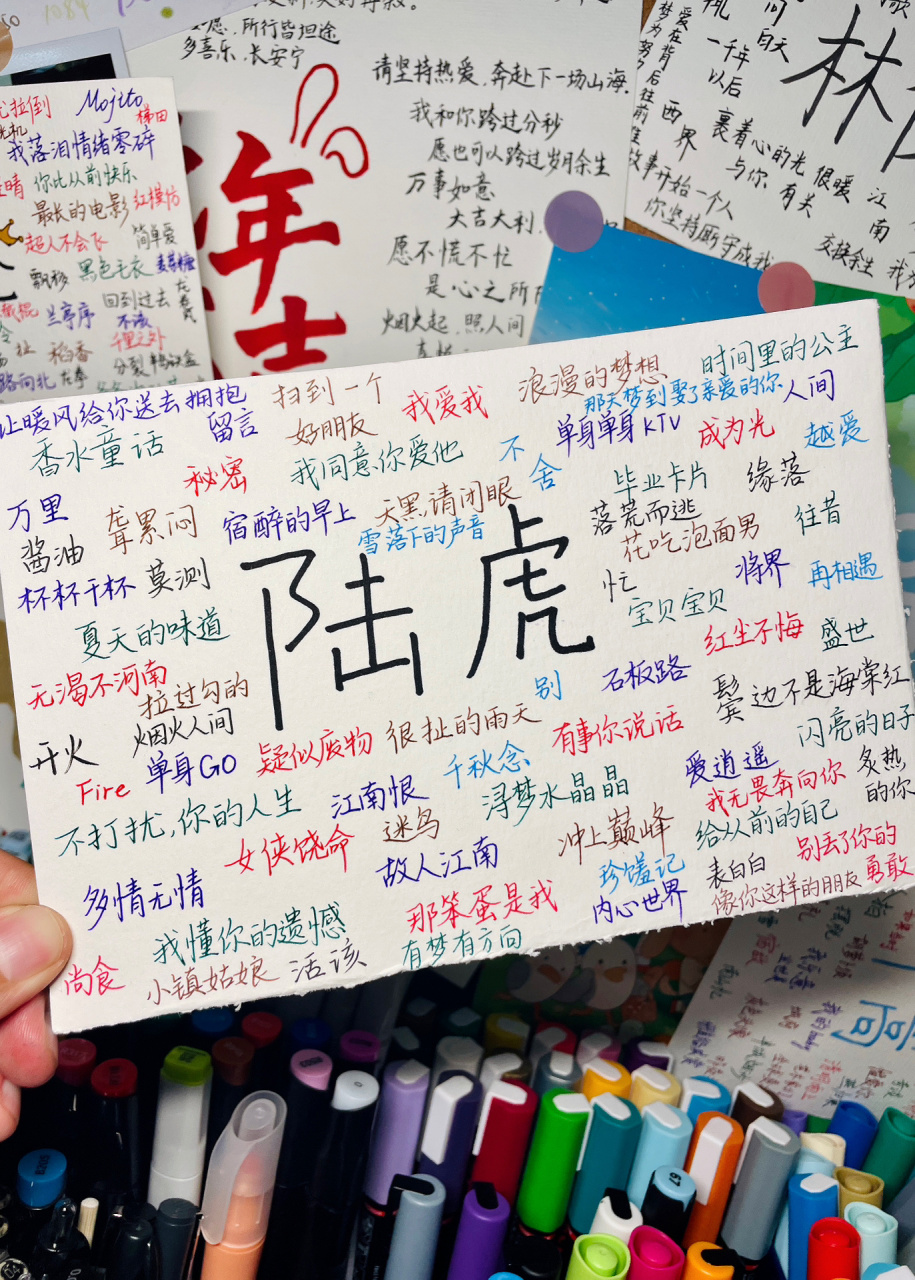 愿，所行皆坦途
多喜乐，长安宁
请坚持热爱，奔赴下一场山海．
我和你跨过分秒
愿也可以跨过岁月余生
万事如意
大吉大利
愿不慌不忙
是心之所
烟火起，照人间
年
一千年
以后
西
界
裹着心的光
与你
很暖
有关
江
南
故事开始一个人
你坚持厮守成我
交换余生
林
拉倒
Mojito
梯田
我落泪情绪零碎
晴
你比从前快乐
最长的电影
红模仿
超人不会飞
简单爱
飘移
黑色毛衣
麦芽糖
兰亭序
回到过去
不该
千里之外
稻香
分裂
路向北
让暖风给你送去拥抱
扫到一个
好朋友
留言
我爱我
浪漫的梦想
时间里的公主
那天梦到娶了亲爱的你
人间
香水童话
秘密
我同意你爱他
不舍
单身单身KTV
成为光
越爱
万里
聋累闷
宿醉的早上
天黑请闭眼
毕业卡片
缘落
酱油
雪落下的声音
落荒而逃
花吃泡面男
往昔
杯杯干杯
莫测
陆虎
忙
宝贝宝贝
将界
再相遇
夏天的味道
红尘不悔
盛世
无渴不河南
拉过勾的
别
石板路
鬓边不是海棠红
开火
烟火人间
疑似废物
很扯的雨天
有事你说话
闪亮的日子
Fire
单身GO
千秋念
爱逍遥
炙热的你
不打扰，你的人生
江南恨
浔梦水晶晶
我无畏奔向你
女侠饶命
迷鸟
冲上巅峰
给从前的自己
多情无情
故人江南
珍馐记
表白白
别丢了你的勇敢
我懂你的遗憾
那笨蛋是我
内心世界
像你这样的朋友
尚食
小镇姑娘
活该
有梦有方向